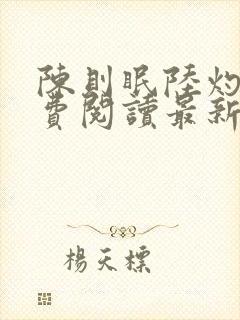 陳則眠陸灼
費閱讀最新
楊天標